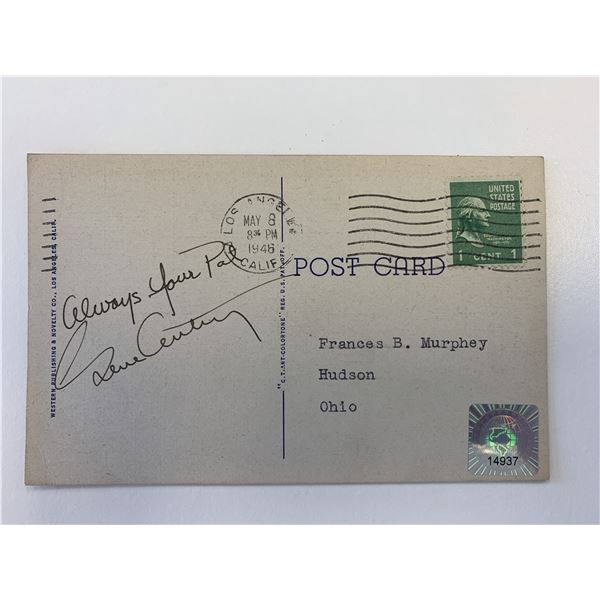 LOS ANGEL
MAY 8
8 30 PM
1946
CALIF.
UNITED
STATES
POSTAGE
WASHINGTON
1 CENT 1
POST CARD
Always Your Pal
Gene Autry
Frances B. Murphey
Hudson
Ohio
WESTERN PUBLISHING & NOVELTY CO., LOS ANGELES, CALIF.
"C.T. ART-COLORTONE" REG. U.S. PAT. OFF.
14937